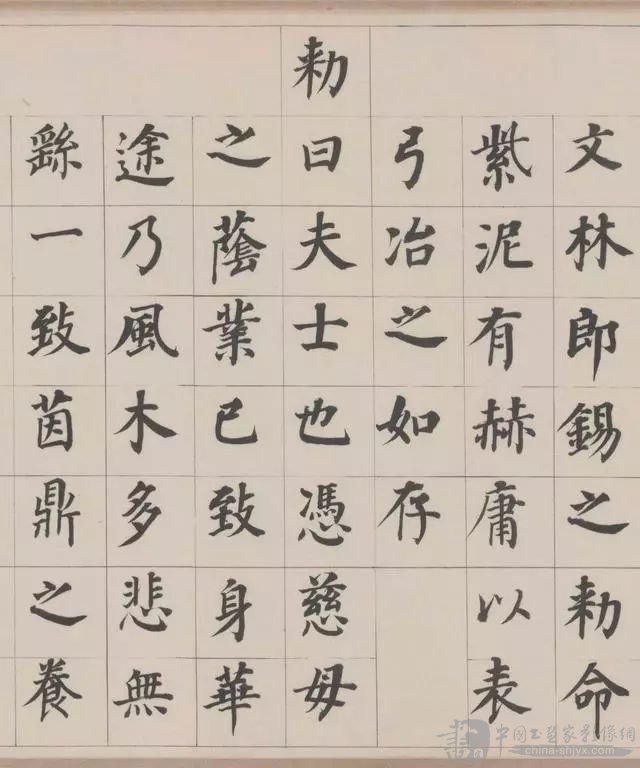 文林郎錫之勑命
紫泥有赫庸以表
弓冶之如存
勑
曰夫士也憑慈母
之蔭業已致身華
途乃風木多悲無
繇一致茵鼎之養
中國书画家影像網
china-shjyx.com